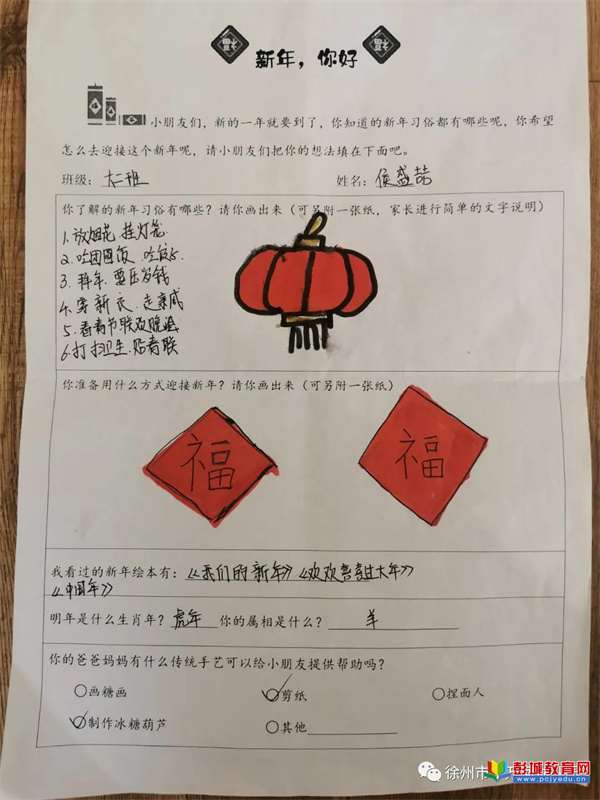 福 福
新年，你好
小朋友们，新的一年就要到了，你知道的新年习俗都有哪些呢，你希望
怎么去迎接这个新年呢，请小朋友们把你的想法填在下面吧。
班级：大二班 姓名：侯盛喆
你了解的新年习俗有哪些？请你画出来（可另附一张纸，家长进行简单的文字说明）
1.放烟花 挂灯笼
2.吃团圆饭 吃饺子
3.拜年 要压岁钱
4.穿新衣 走亲戚
5.看春节联欢晚会
6.打扫卫生 贴春联
你准备用什么方式迎接新年？请你画出来（可另附一张纸）
福 福
我看过的新年绘本有：《我们的新年》《欢欢喜喜过大年》
《中国年》
明年是什么生肖年？虎年 你的属相是什么？羊
你的爸爸妈妈有什么传统手艺可以给小朋友提供帮助吗？
画糖画 剪纸 捏面人
制作冰糖葫芦 其他
徐州市
彭城教育网
www.pcjyedu.cn